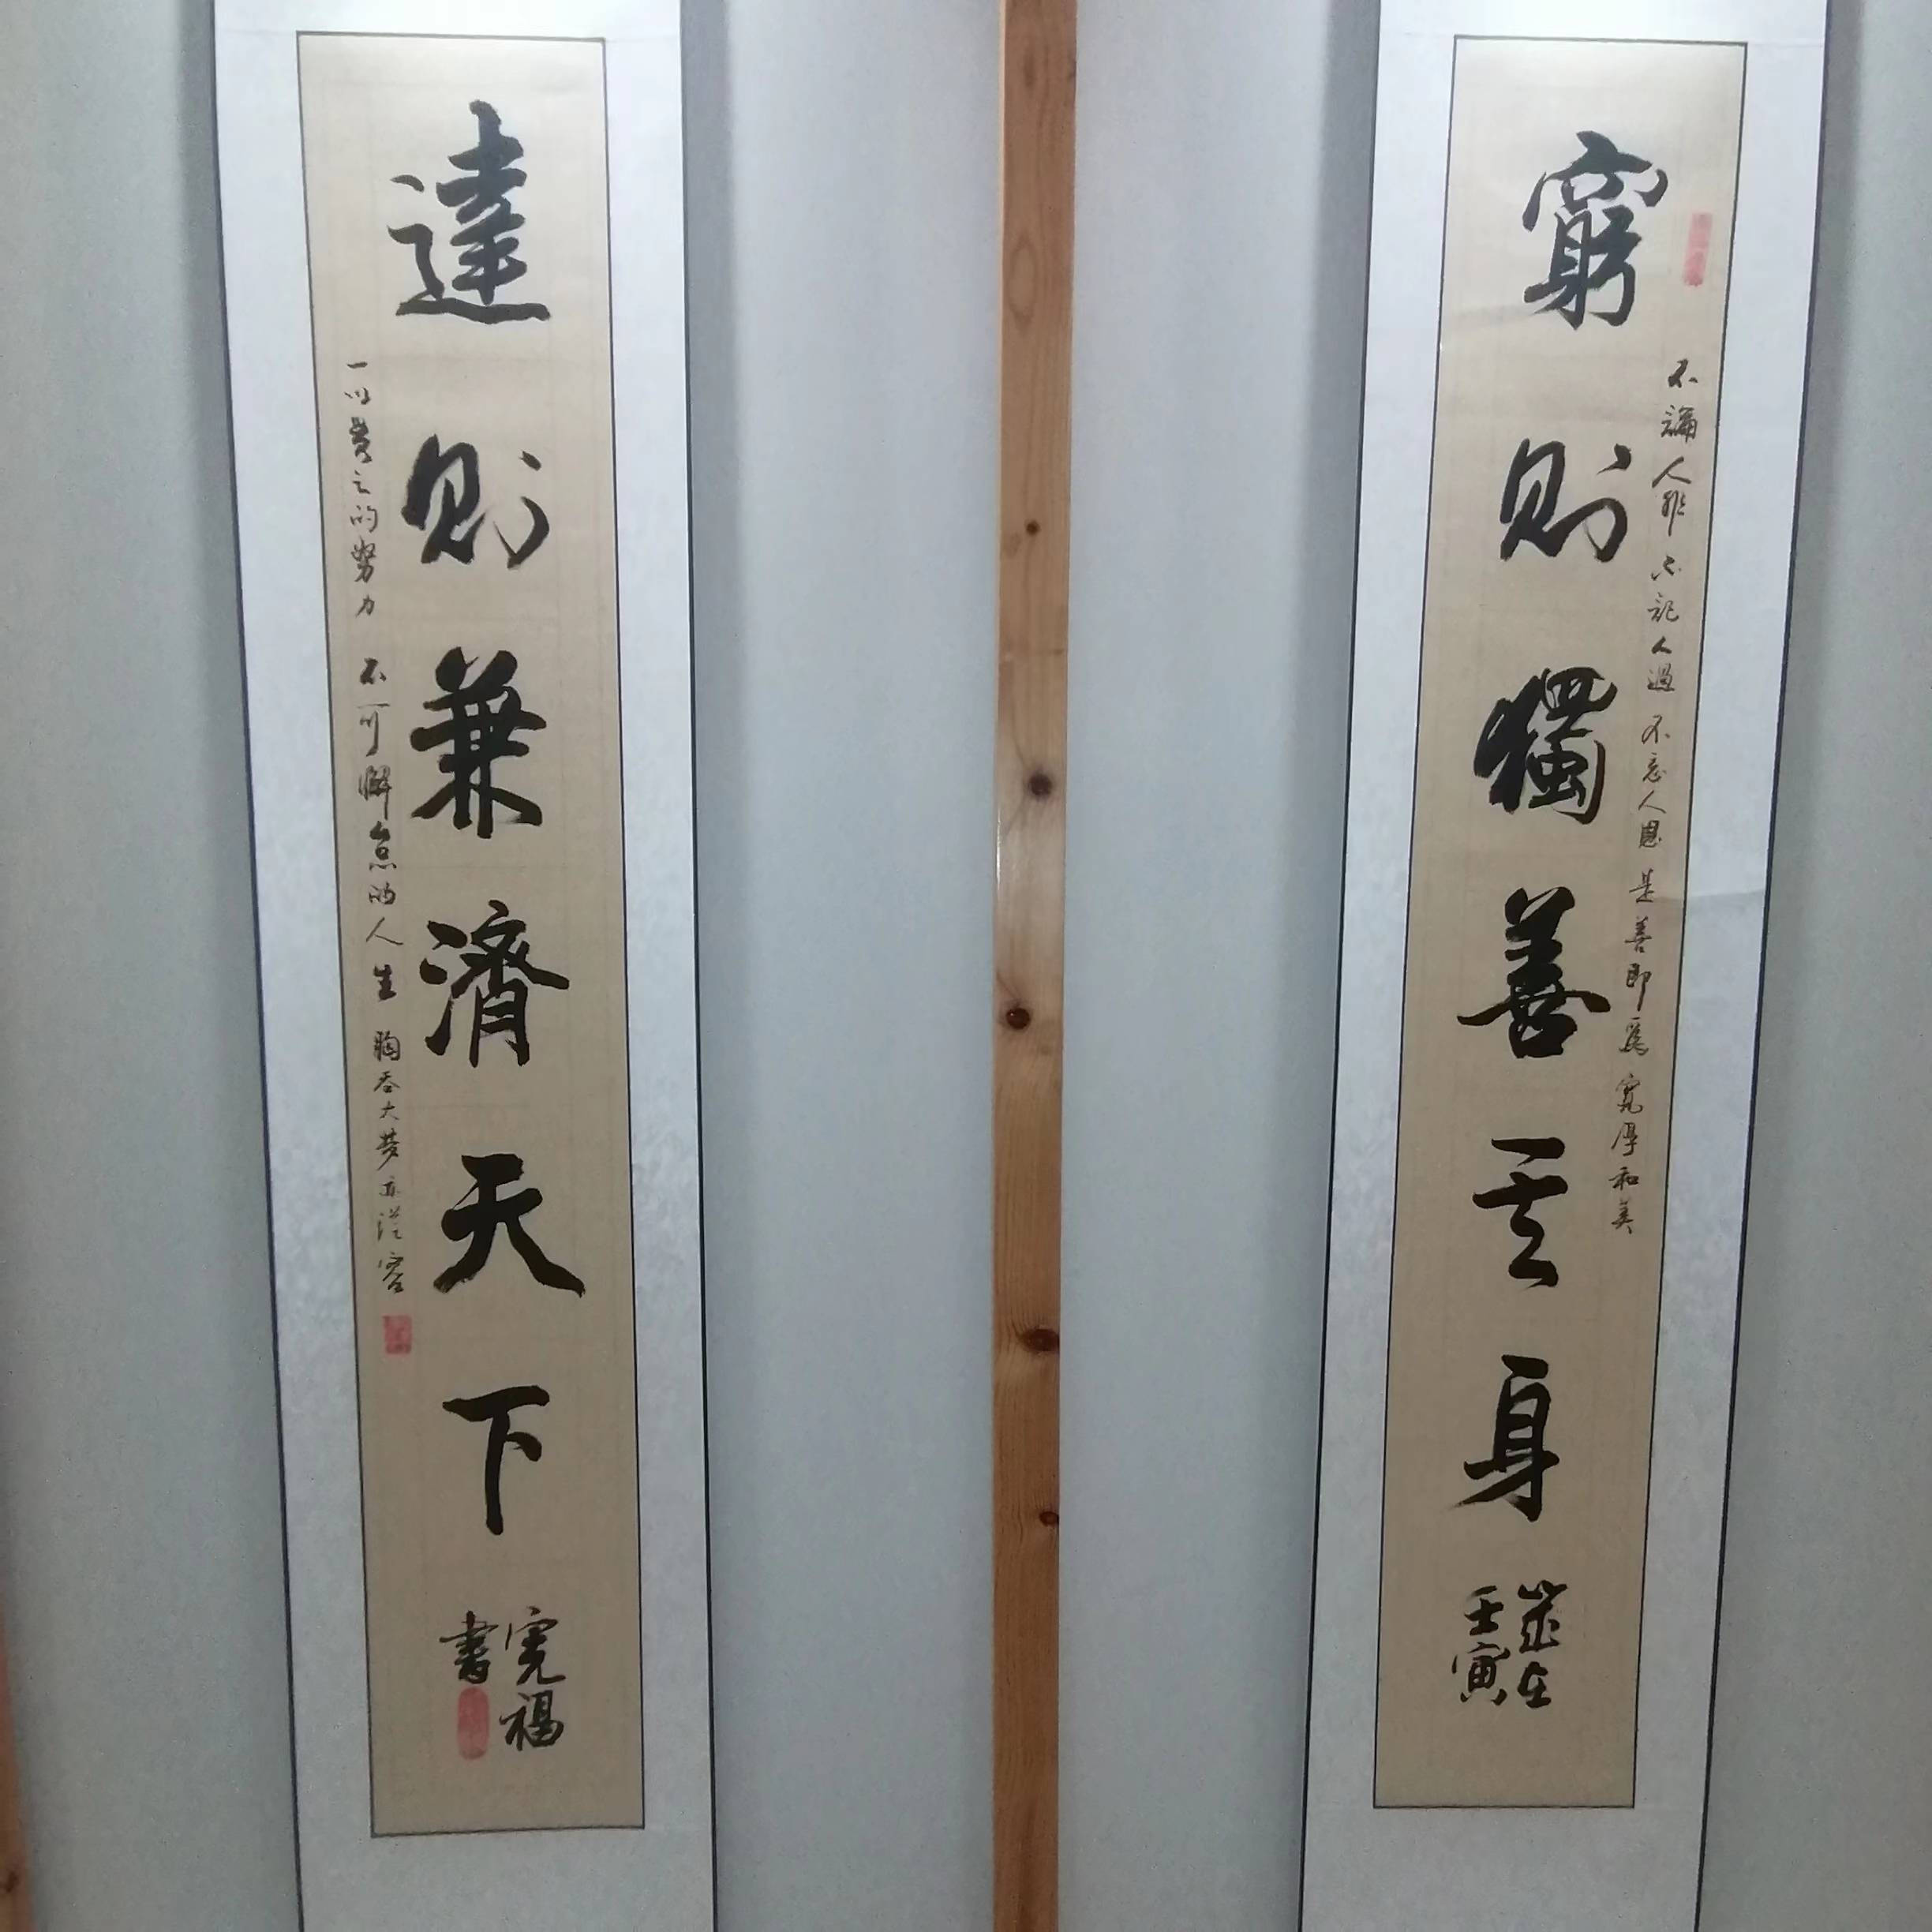 窮則獨善其身
不論人非 不記人過 不忘人恩 是善即為 寬厚和美
歲在
壬寅
達則兼濟天下
一以貫之的努力 不可懈怠的人生 胸吞大夢亦從容
寬福
書